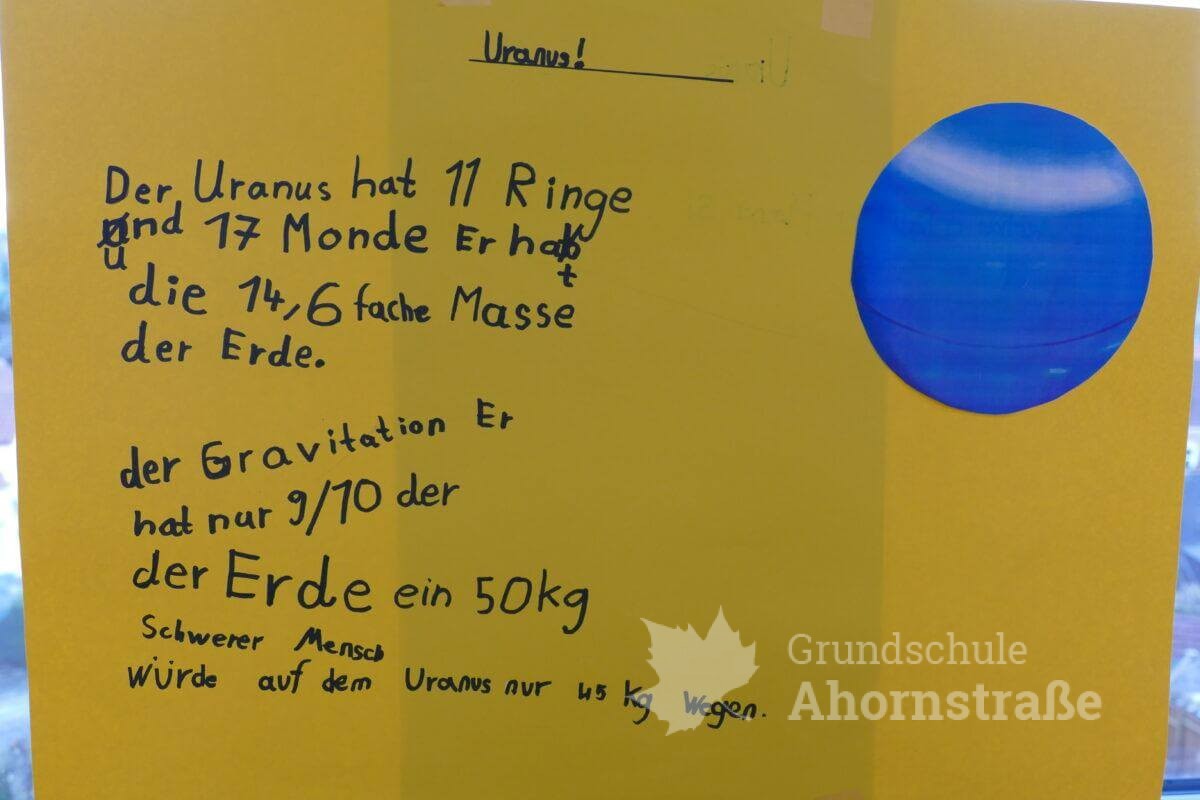 Uranus!
Der Uranus hat 11 Ringe
und 17 Monde Er hat
die 14,6 fache Masse
der Erde.
der Gravitation Er
hat nur 9/10 der
der Erde ein 50kg
Schwerer Mensch
würde auf dem Uranus nur 45 kg wegen.
Grundschule
Ahornstraße